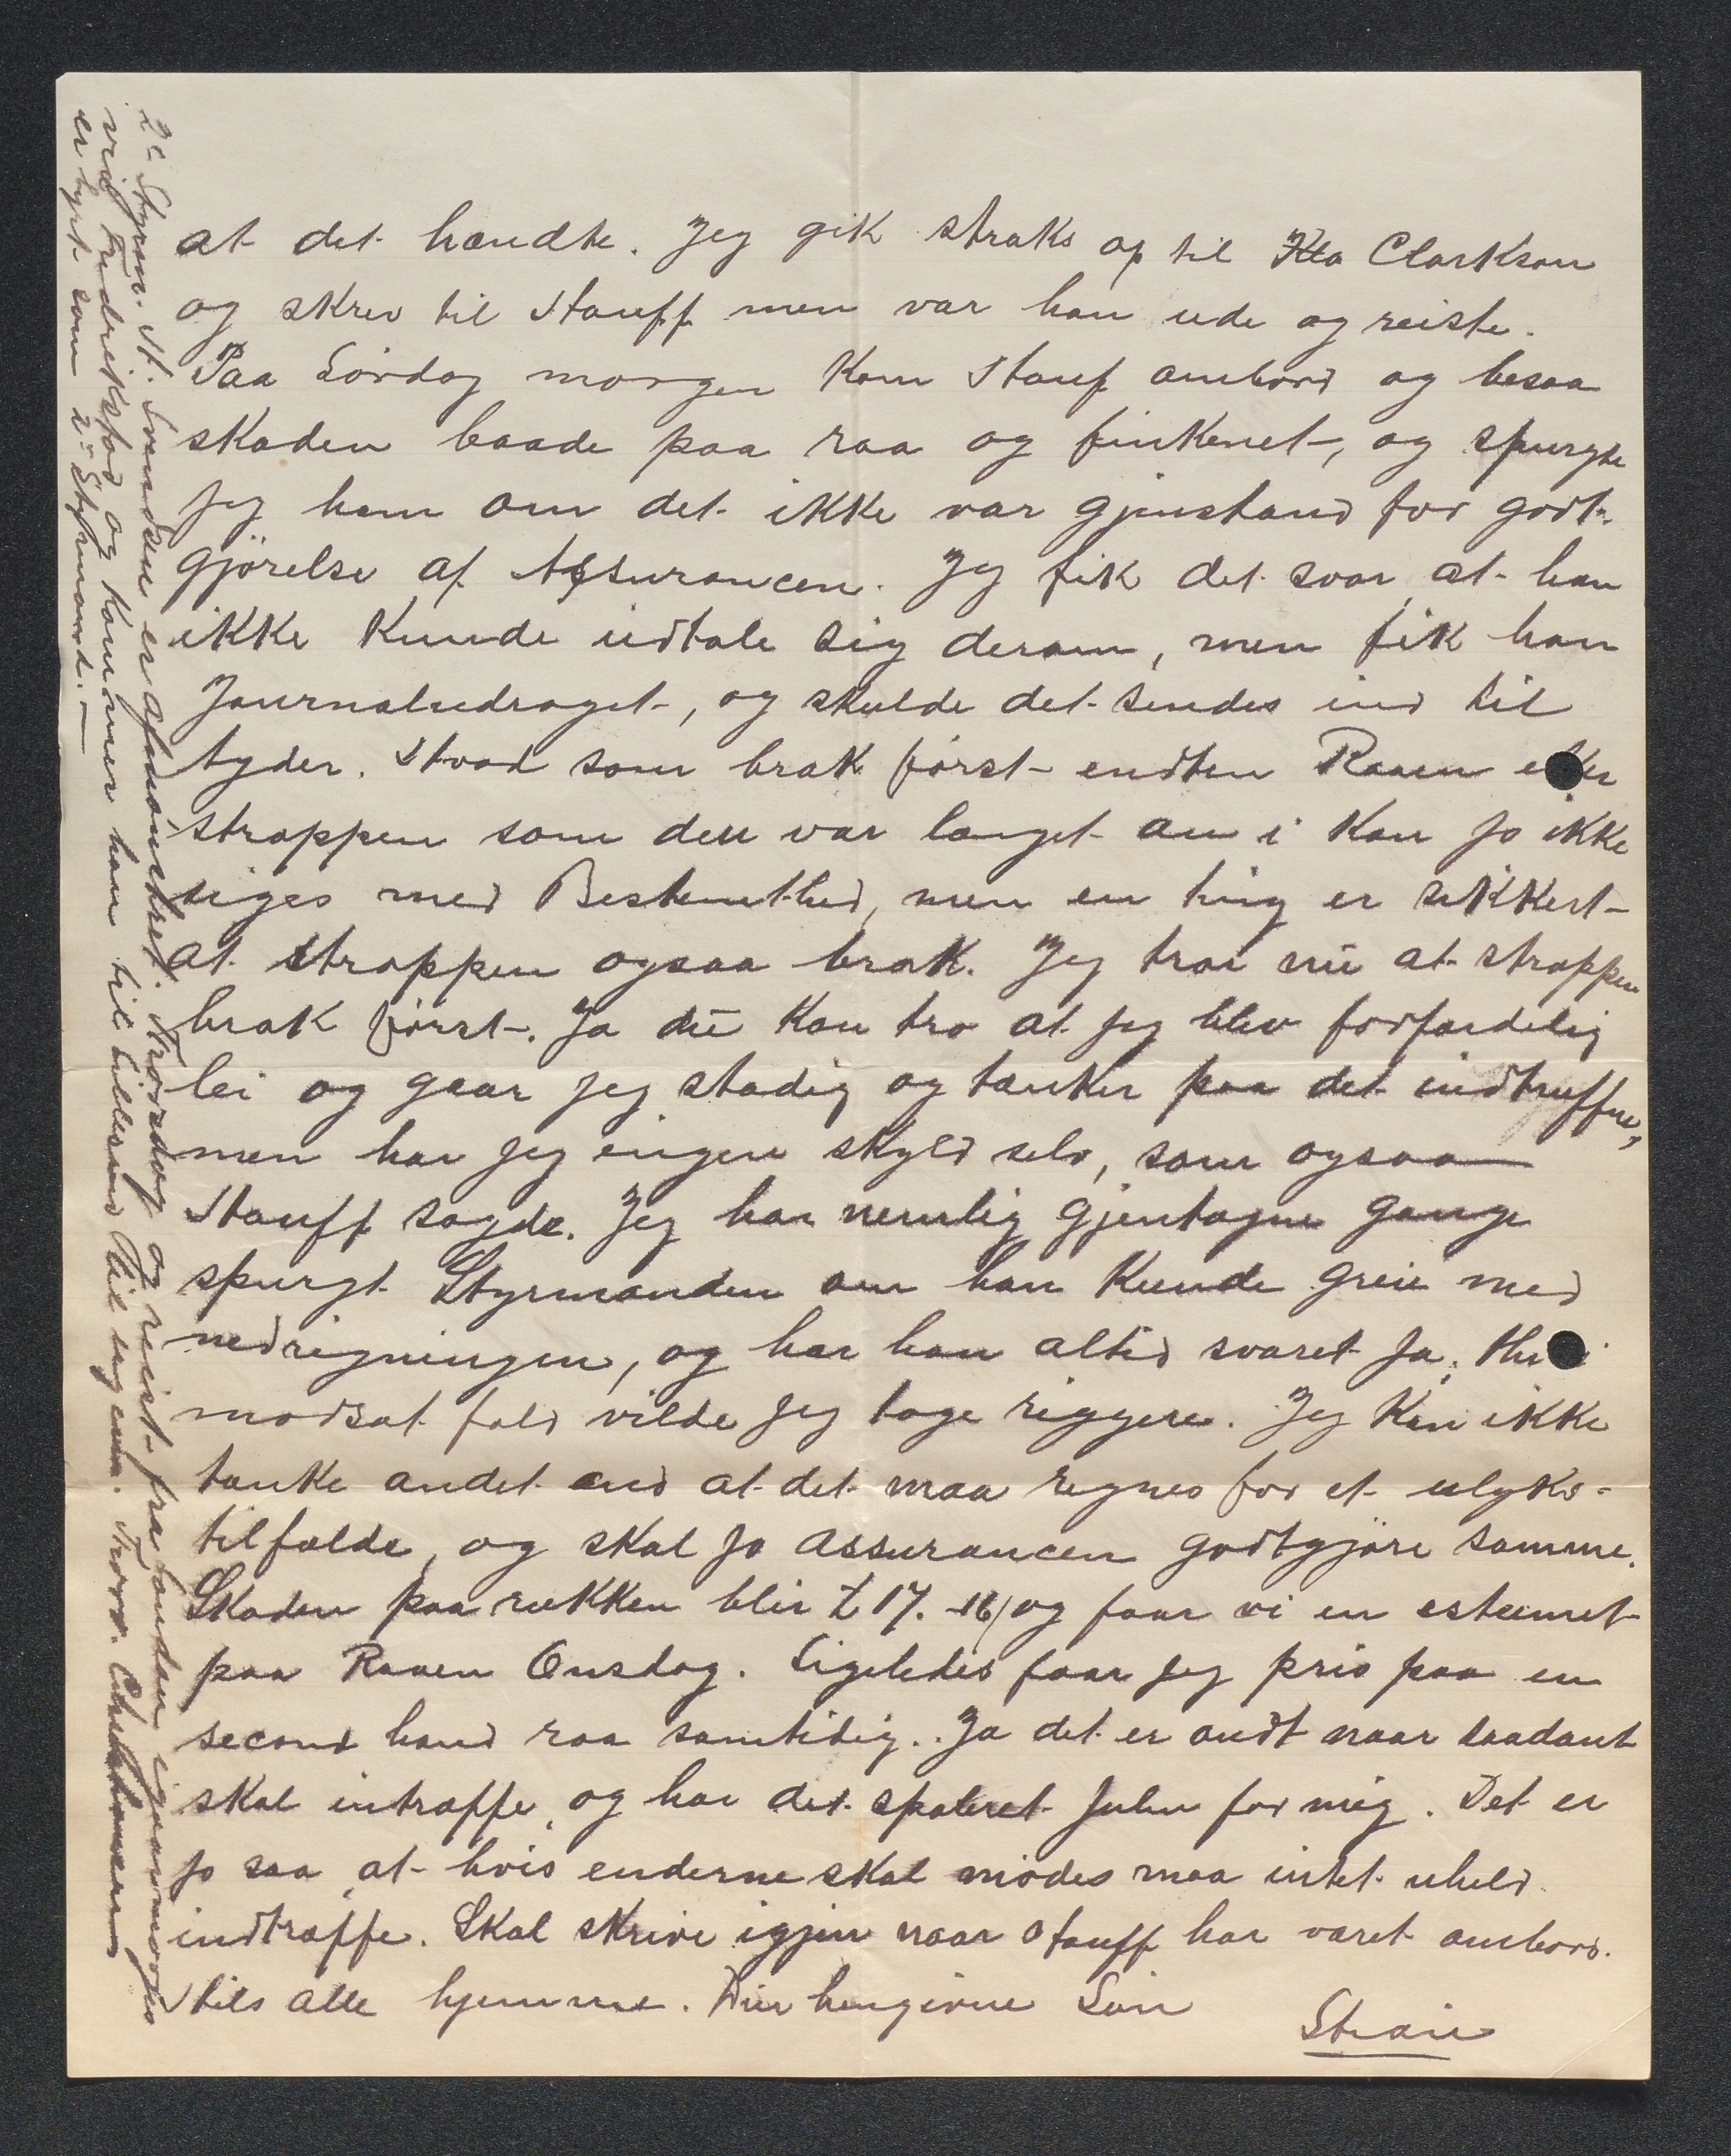 at det hændte. Jeg gik straks op til Clarkson
og skrev til Stauff men var han ude og reiste.
Paa Lördag morgen kom Stauf ombord og besaa
skaden baade paa raa og finkenet, og spurgte
jeg ham om det ikke var gjenstand for godt-
gjörelse af Assurancen. Jeg fik det svar, at han
ikke kunde udtale sig derom, men fik han
Journaludraget, og skulde det sendes ind til
tyder. Hvad som brak först endten Raaen eller
stroppen som den var langet am i kan jo ikke
siges med Bestemthed, men en ting er sikkert
at stroppen ogsaa brak. Jeg tror nu at stroppen
brak först. Ja du kan tro at jeg blev forfærdelig
lei og gaar jeg stadig og tænker paa det indtrufne,
men har jeg ingen skyld selv, som ogsaa
Stauff sagde. Jeg har nemlig gjentagne gange
spurgt Styrmanden om han kunde greie med
nedrigningen, og har han altid svaret ja, Hvi
modsat fald vilde jeg tage riggere. Jeg kan ikke
tænke andet end at det maa regnes for et ulyks-
tilfælde, og skal jo assurancen godtgjöre samme.
Skaden paa rækken blir £ 17.-16/ og faar vi en esteemet
paa Raaen Onsdag. Ligeledes faar jeg pris paa en
second hand raa samtidig.. Ja det er ondt naar saadant
skal intræffe, og har det spoleret Julen for mig. Det er
jo saa, at hvis enderne skal mödes maa intet uheld
indtræffe. Skal skrive igjen naar Stauff har været ombord.
Hils alle hjemme. Din hengivne Sön
2de Styrm. St. Svendsen er afmönstret. Torsdag og reist fra London igaarmorges
via Fredrikstad og kommer han til Lillesand Hils ingen. Torv. Christensen
er hyrt som 2n Styrmand.—